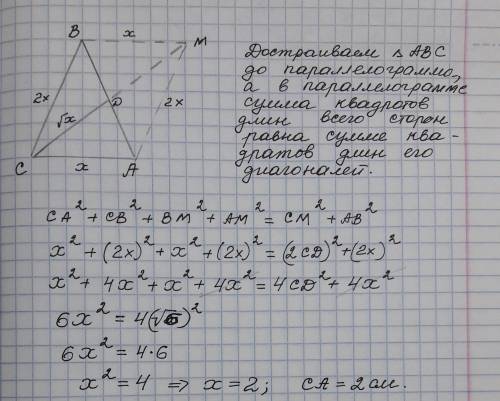 B
x
M
2x
D
2x
√x
C
x
A
Достраиваем △ ABC
до параллелограмма,
а в параллелограмме
сумма квадратов
длин всего сторон
равна сумме ква-
дратов длин его
диагоналей.
CA² + CB² + BM² + AM² = CM² + AB²
x² + (2x)² + x² + (2x)² = (2CD)² + (2x)²
x² + 4x² + x² + 4x² = 4CD² + 4x²
6x² = 4(√6)²
6x² = 4·6
x² = 4 ⇒ x = 2; CA = 2 см.